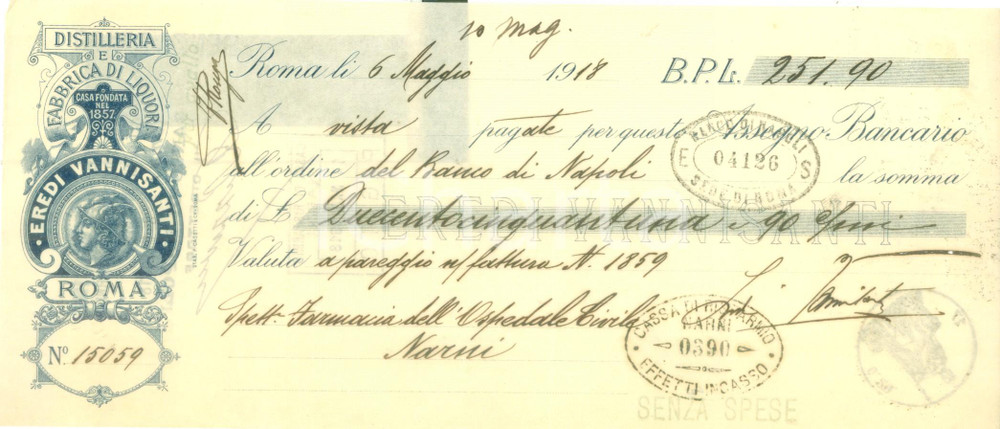 DISTILLERIA
E
FABBRICA DI LIQUORI
CASA FONDATA
NEL
1857
EREDI VANNISANTI
ROMA
Nº 15059
10 Mag.
Roma li 6 Maggio 1918 B.P.L. 251.90
A vista pagate per questo Assegno Bancario
all'ordine del Banco di Napoli la somma
di £ Duecentocinquantuna e 90 c/mi
EREDI VANNISANTI
Valuta a pareggio n/ fattura N. 1859
Spett. Farmacia dell'Ospedale Civile
Narni
BANCO DI NAPOLI
E 04126 S
SEDE DI ROMA
CASSA DI RISPARMIO
NARNI
0390
EFFETTI INCASSO
SENZA SPESE